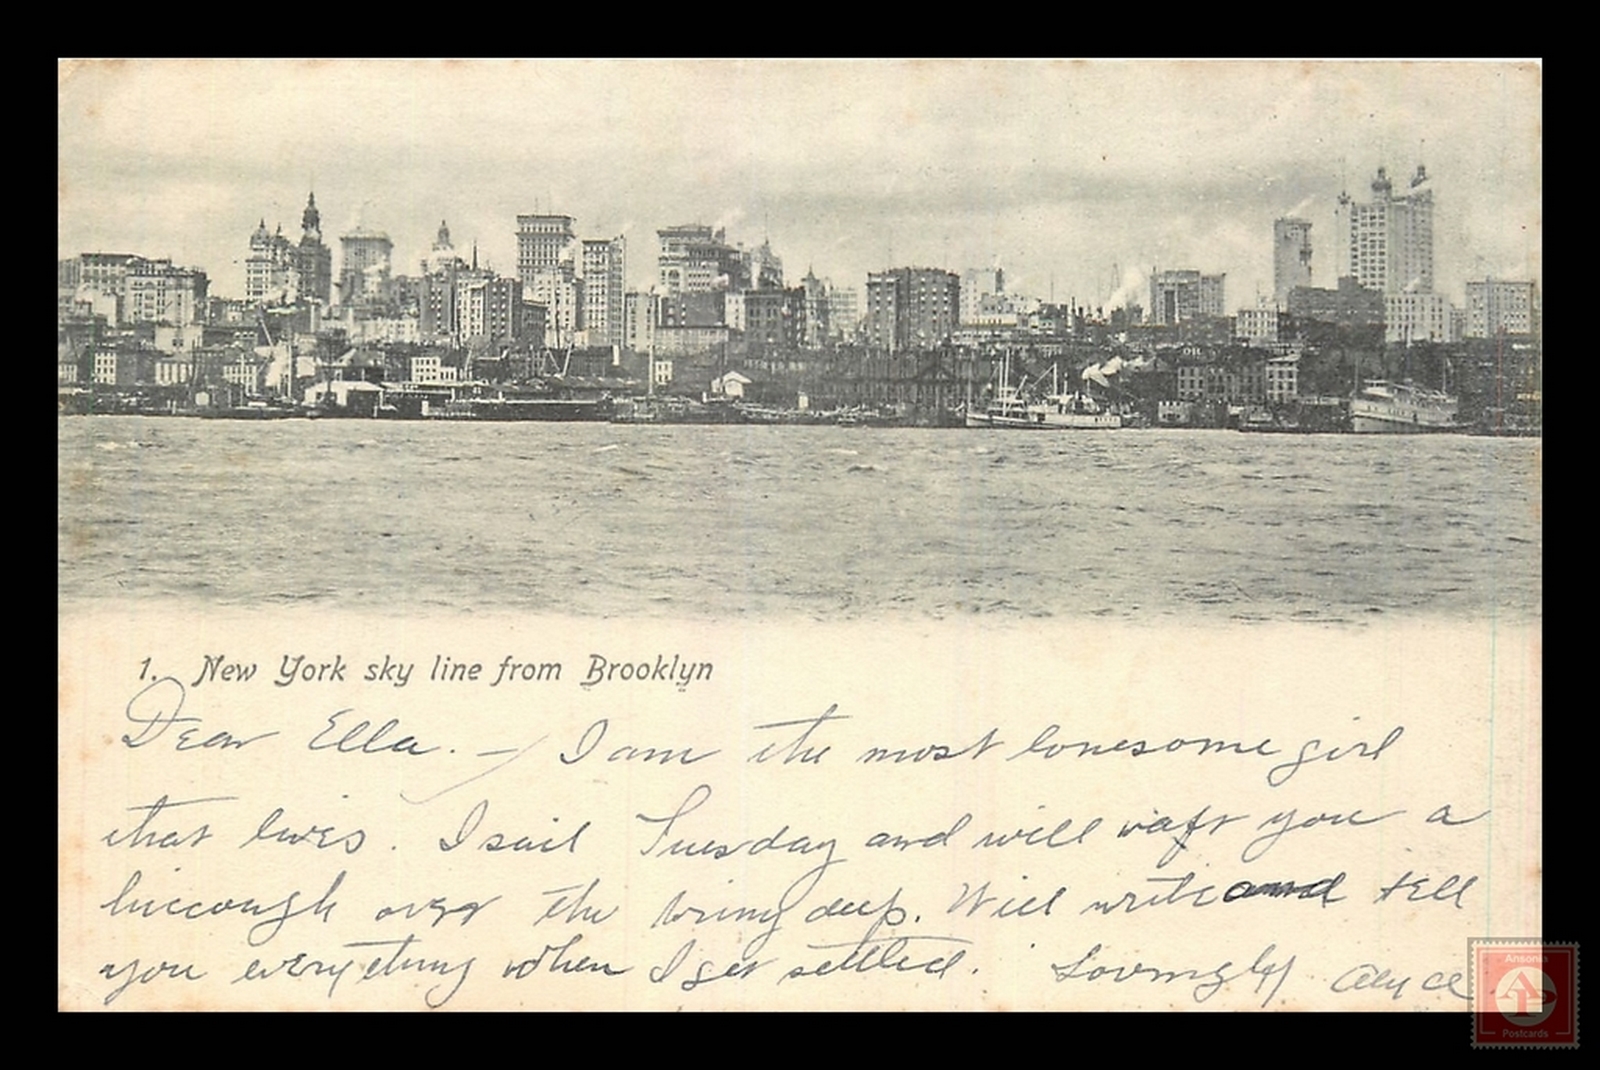 OIL
1. New York sky line from Brooklyn
Dear Ella. — I am the most lonesome girl
that lives. I sail Tuesday and will waft you a
hiccough over the briny deep. Will write and tell
you everything when I get settled. Lovingly Alyce
Ansonia
AP
Postcards